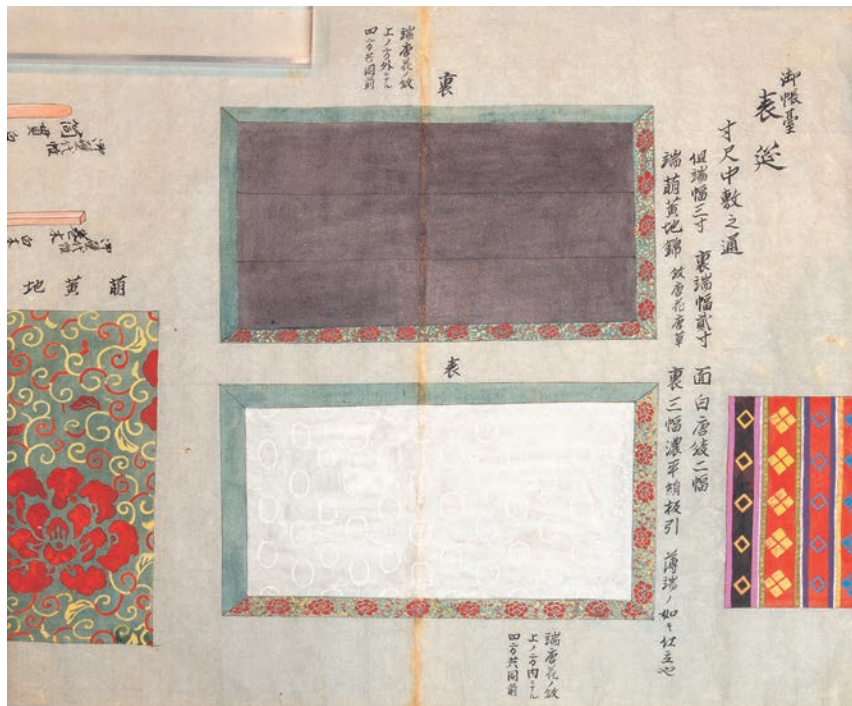 御帳臺
表筵
寸尺中敷之通
但端幅三寸 裏端幅貳寸 面白唐綾二幅
端萌黄地錦 紋唐花唐草 裏三幅濃平絹板引 薄端ノ如ク仕立也
裏
端唐花ノ紋
上ノ方外ニナル
四方共同前
表
端唐花ノ紋
上ノ方内ニナル
四方共同前
萌黄地